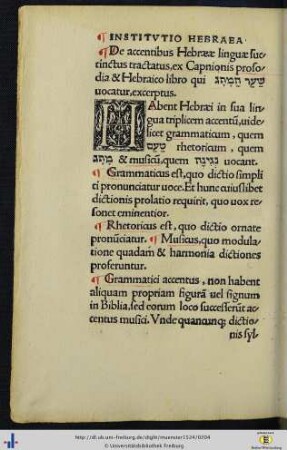 ¶ INSTITVTIO HEBRAEA
¶ De accentibus Hebrææ linguæ suc
cinctus tractatus, ex Capnionis proso
dia & Hebraico libro qui שער המתג
uocatur, excerptus.
HAbent Hebræi in sua lin
gua triplicem accentũ, uide
licet grammaticum, quem
טעם rhetoricum, quem
מתג & musicũ, quem נגינה uocant.
¶ Grammaticus est, quo dictio simpli
ci pronunciatur uoce. Et hunc cuiuslibet
dictionis prolatio requirit, quo uox res
sonet eminentior.
¶ Rhetoricus est, quo dictio ornate
pronũciatur. ¶ Musicus, quo modula
tione quadam & harmonia dictiones
proferuntur.
¶ Grammatici accentus, non habent
aliquam propriam figurã uel signum
in Biblia, sed eorum loco successerũt ac
centus musici. Vnde quancunq; dictio
nis syl-
http://dl.ub.uni-freiburg.de/diglit/muenster1524/0204
© Universitätsbibliothek Freiburg